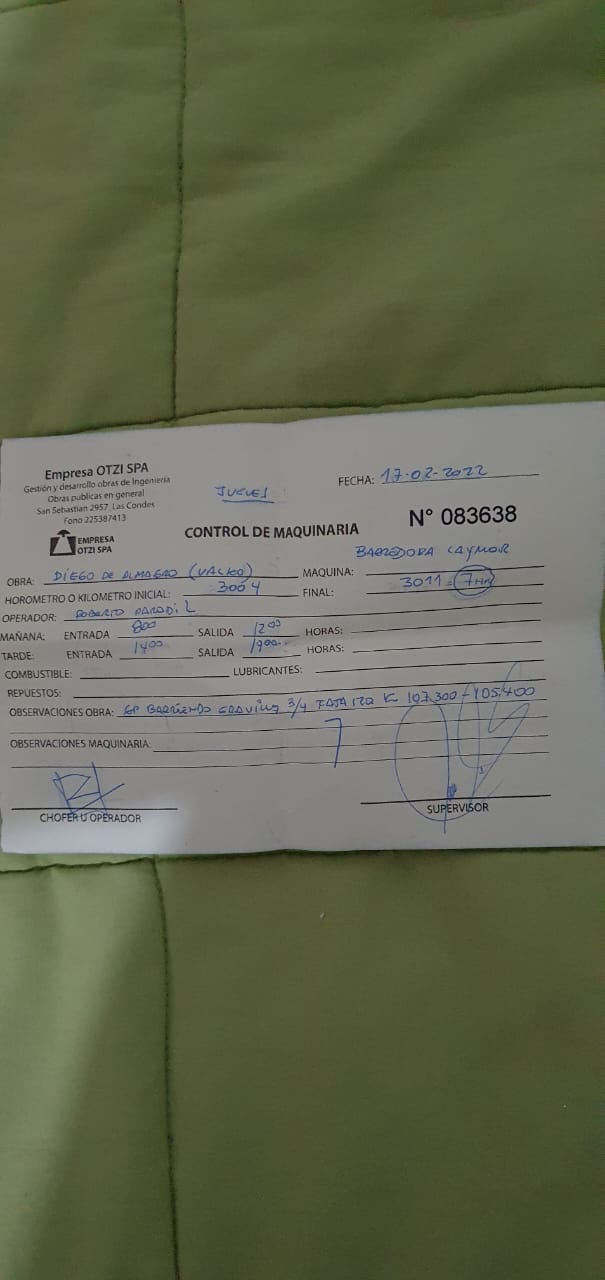 Empresa OTZI SPA
Gestión y desarrollo obras de Ingenieria
Obras publicas en general
San Sebastian 2957, Las Condes
Fono 225387413
EMPRESA
OTZI SPA
JUEVES
FECHA: 17-02-2022
CONTROL DE MAQUINARIA
N° 083638
OBRA: DIEGO DE ALMAGRO (VALKO) MAQUINA: BARREDORA LAYMOR
HOROMETRO O KILOMETRO INICIAL: 3004 FINAL: 3011 = 7HM
OPERADOR: ROBERTO PARODI L
MAÑANA: ENTRADA 800 SALIDA 1200 HORAS:
TARDE: ENTRADA 1400 SALIDA 1900 HORAS:
COMBUSTIBLE: LUBRICANTES:
REPUESTOS:
OBSERVACIONES OBRA: BARRIENDO GRAVILLA 3/4 FAJA IZQ K 107.300 - 105.400
OBSERVACIONES MAQUINARIA:
7
CHOFER U OPERADOR
SUPERVISOR